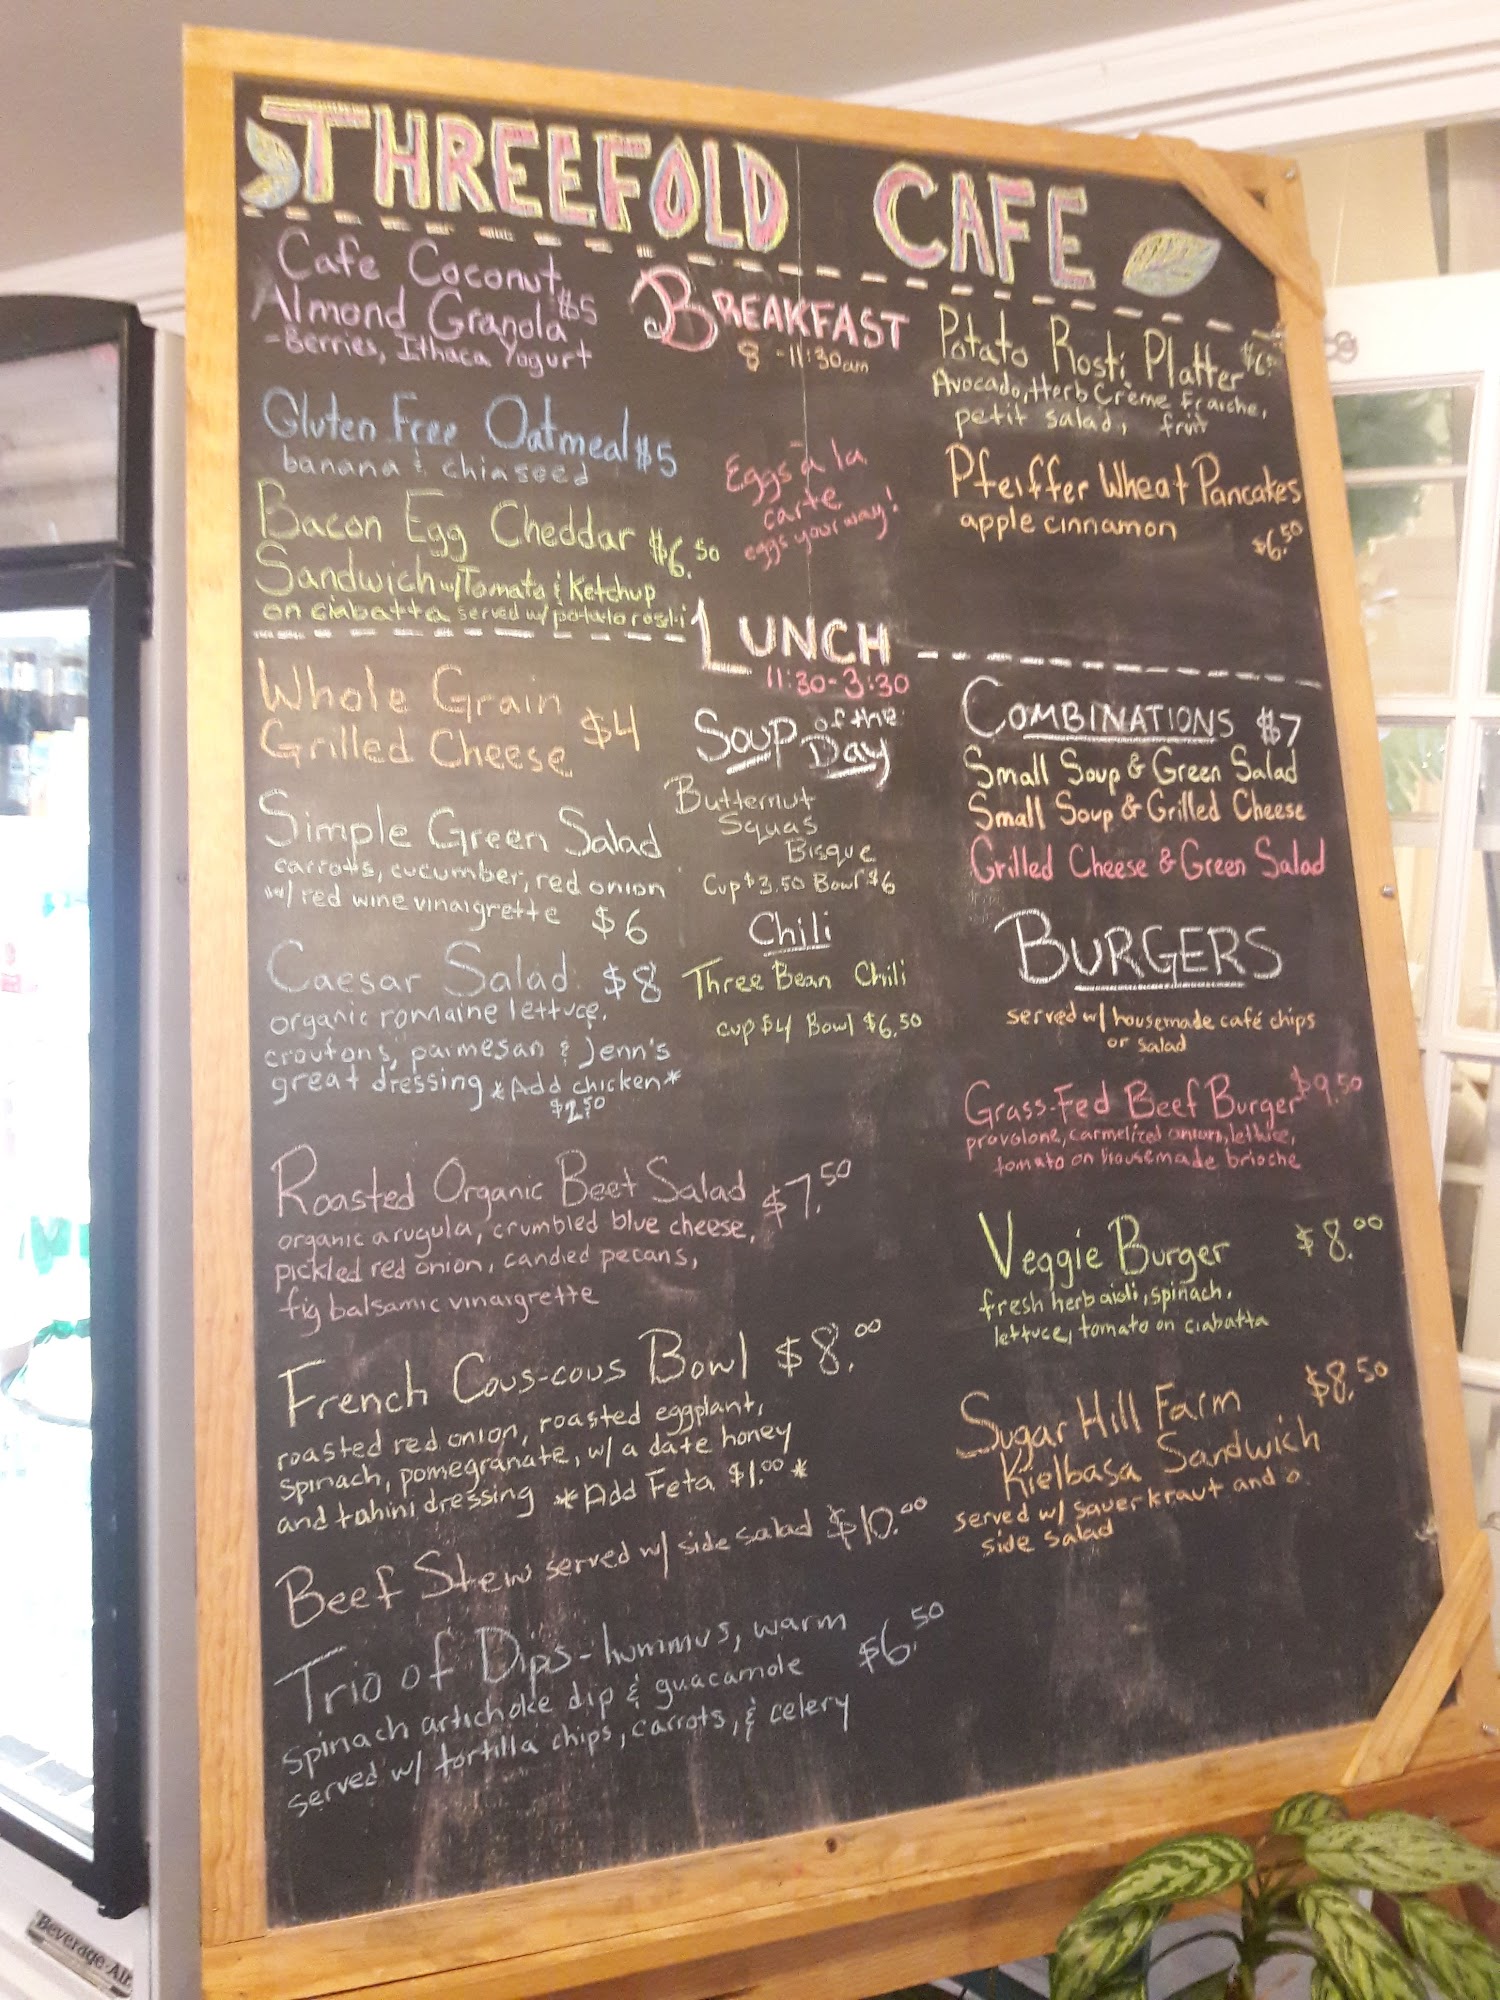 THREEFOLD CAFE
Cafe Coconut
Almond Granola $5
-Berries, Ithaca Yogurt
Gluten Free Oatmeal $5
banana & chiaseed
Bacon Egg Cheddar $6.50
Sandwich w/Tomato & Ketchup
on ciabatta served w/ potato rosti
BREAKFAST
8 -11:30am
Eggs à la
carte
eggs your way!
Potato Rosti Platter
Avocado, Herb Crème Fraiche,
petit salad, fruit
Pfeiffer Wheat Pancakes
apple cinnamon
$6.50
LUNCH
11:30-3:30
Whole Grain
Grilled Cheese $4
Simple Green Salad
carrots, cucumber, red onion
w/ red wine vinaigrette $6
Caesar Salad $8
organic romaine lettuce,
croutons, parmesan & Jenn's
great dressing *Add chicken*
$2.50
Roasted Organic Beet Salad $7.50
organic arugula, crumbled blue cheese,
pickled red onion, candied pecans,
fig balsamic vinaigrette
French Cous-cous Bowl $8.00
roasted red onion, roasted eggplant,
spinach, pomegranate, w/ a date honey
and tahini dressing *Add Feta $1.00*
Beef Stew served w/ side salad $10.00
Trio of Dips- hummus, warm
spinach artichoke dip & guacamole $6.50
served w/ tortilla chips, carrots, & celery
Soup of the
Day
Butternut
Squas
Bisque
Cup $3.50 Bowl $6
Chili
Three Bean Chili
cup $4 Bowl $6.50
COMBINATIONS $7
Small Soup & Green Salad
Small Soup & Grilled Cheese
Grilled Cheese & Green Salad
BURGERS
served w/ housemade café chips
or salad
Grass-Fed Beef Burger $9.50
provolone, carmelized onions, lettuce,
tomato on housemade brioche
Veggie Burger $8.00
fresh herb aioli, spinach,
lettuce, tomato on ciabatta
Sugar Hill Farm $8.50
Kielbasa Sandwich
served w/ sauerkraut and a
side salad
Beverage-Air